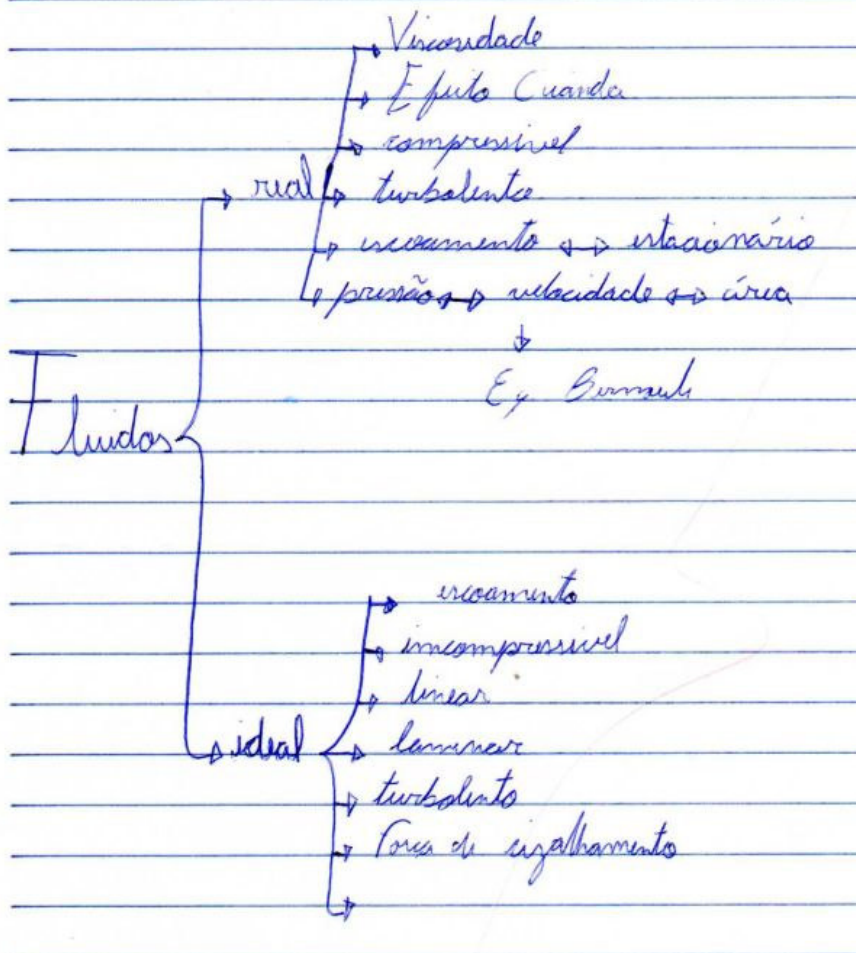 Viscosidade
Efeito Cuanda
compressivel
real turbolento
escoamento ↔ estacionário
pressão ↔ velocidade ↔ área
Ex Bernouli
Fluidos
escoamento
imcompressivel
linear
ideal laminar
turbolento
Força de cizalhamento